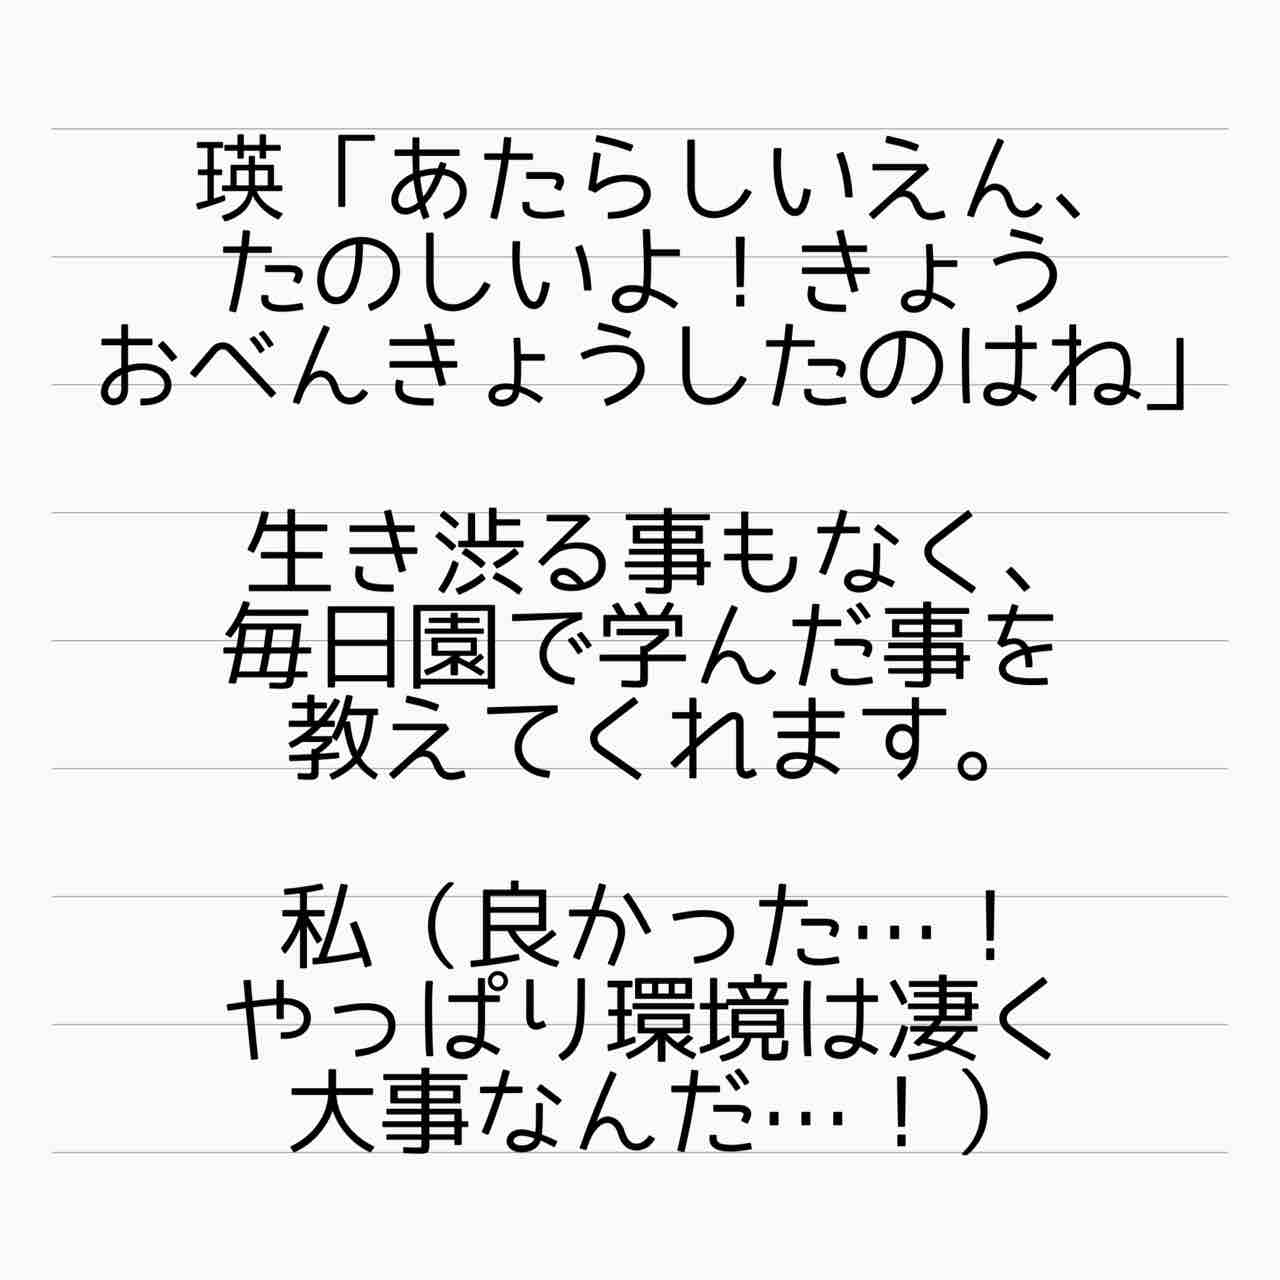 瑛「あたらしいえん、
たのしいよ！きょう
おべんきょうしたのはね」
生き渋る事もなく、
毎日園で学んだ事を
教えてくれます。
私（良かった…！
やっぱり環境は凄く
大事なんだ…！）